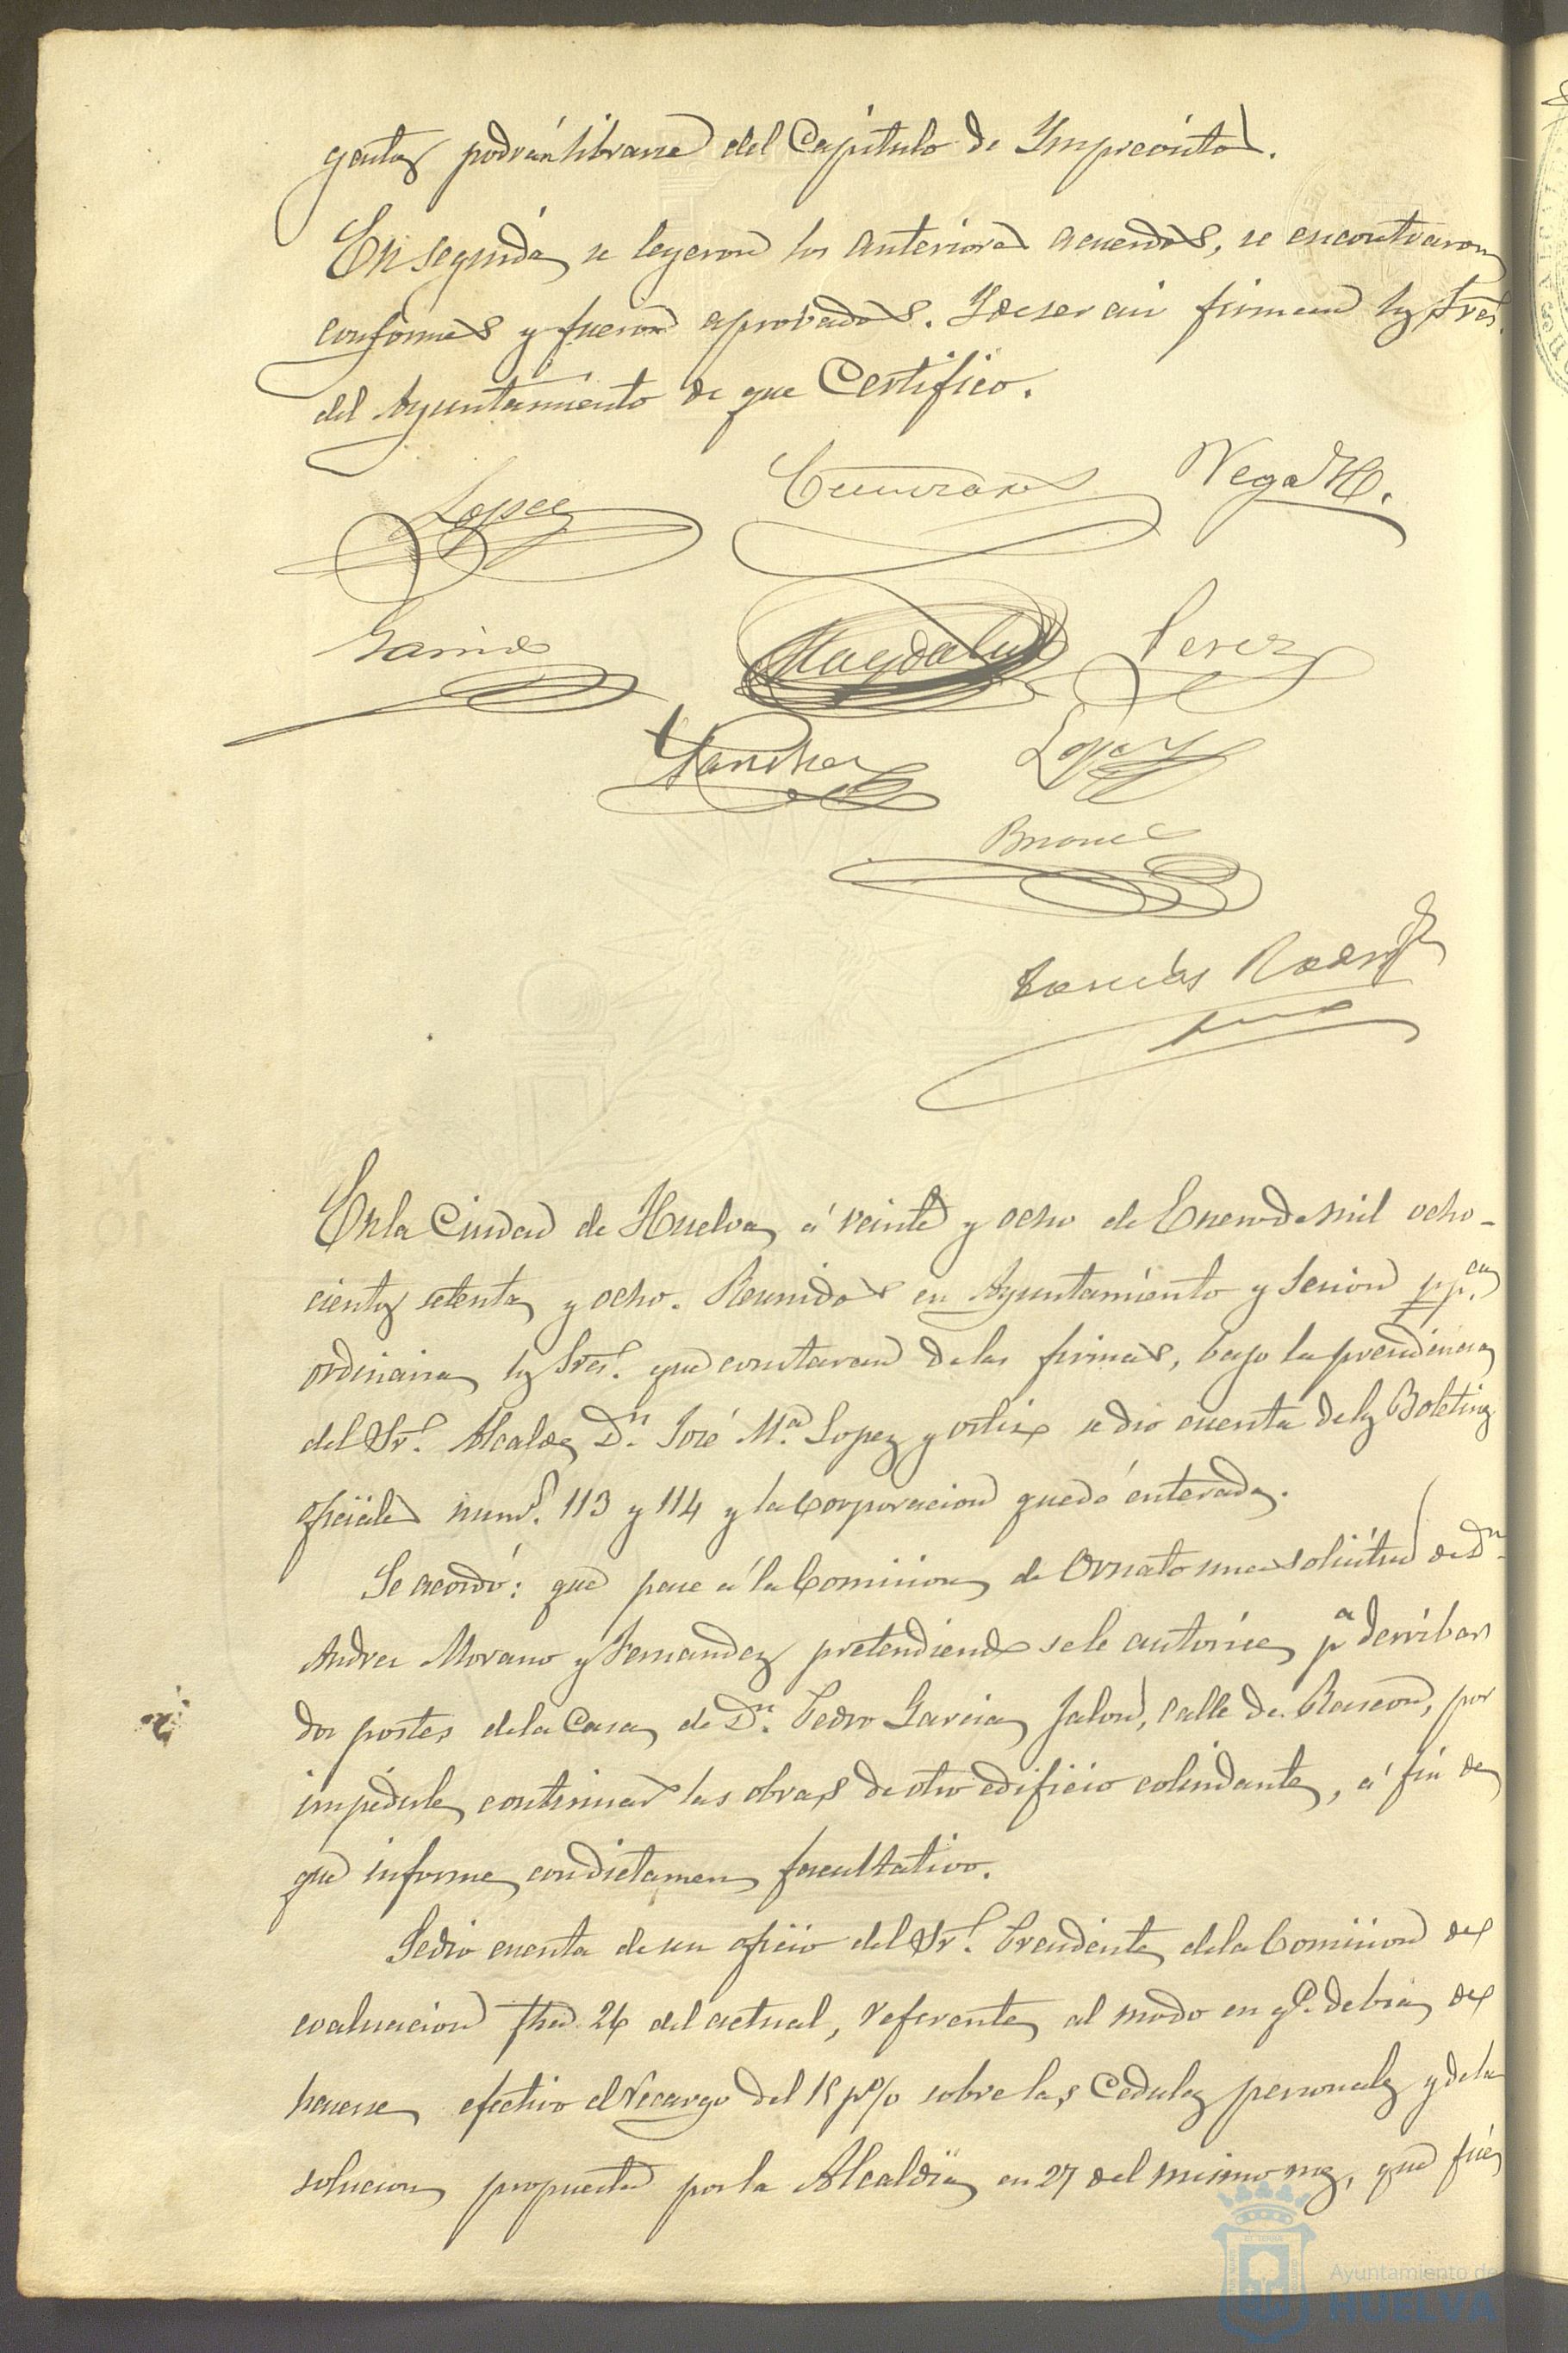 gentes podrán librarse del Capitulo de Imprevistos.
En seguida se leyeron los anteriores acuerdos, se encontraron
conformes y fueron aprobados. Y de ser asi firman los Sres.
del Ayuntamiento de que Certifico.
Lopez
Vega H.
Garrido
Magdalena
Perez
Sanchez
Lopez
En la Ciudad de Huelva á veinte y ocho de Enero de mil ocho-
cientos setenta y ocho. Reunidos en Ayuntamiento y sesion ppca
ordinaria los Sres. que constaran de las firmas, bajo la presidencia
del Sr. Alcalde Dn. José Ma. Lopez y Ortiz se dio cuenta de los Boletines
oficiales nums. 113 y 114 y la Corporacion quedó enterada.
Se acordó: que pase á la Comision de Ornato una solicitud de Dn.
Andres Morano y Fernandez pretendiendo se le autorice pa derribar
dos postes de la Casa de Dn. Pedro Garcia Jalon, calle de Rascon, por
impedirle continuar las obras de otro edificio colindante, á fin de
que informe con dictamen facultativo.
Se dio cuenta de un oficio del Sr. Presidente de la Comision de
evaluacion fha. 26 del actual, referente al modo en q. debia de
hacerse efectivo el recargo del 15 p% sobre las Cedulas personales y de la
solucion propuesta por la Alcaldia en 27 del mismo mes, que fué
Ayuntamiento de
HUELVA